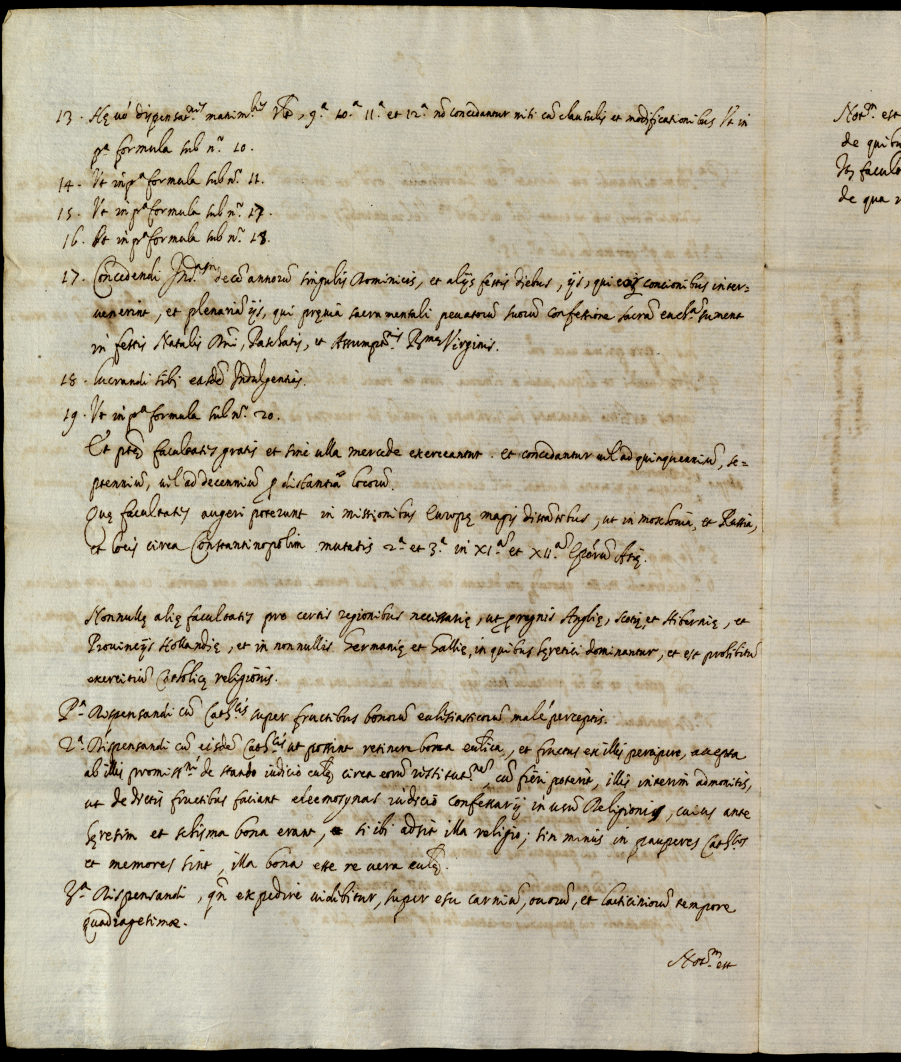 13. Hę uó dispensat.nes matrim.les Vz̃, 9.a 10.a 11.a et 12.a nõ concedantur nisi cũ clausulis et modificationibus Vt in
p.a formula sub n.o 10.
14. Vt in p.a formula sub n.o 11.
15. Vt in p.a formula sub n.o 17.
16. Vt in p.a formula sub n.o 18.
17. Concedendi Ind.am decẽ annorũ singulis Dominicis, et alijs festis diebus, ijs, qui eorũ concionibus inter=
uenerint, et plenariã ijs, qui pręuia sacramentali peccatorũ suorũ confessione sacrã euch.ã sument
in festis Natalis Dñi, Paschatis, et Assumpt.nis B.mę Virginis.
18. Lucrandi sibi easdẽ Indulgentias.
19. Vt in p.a formula sub n.o 20.
Et ptẽ facultates gratis et sine ulla mercede exerceantur. et concedantur uel ad quinquennium, se=
ptennium, uel ad decennium p distantia locorũ.
Quę facultates augeri poterunt in missionibus Europę magis distantibus, ut in Moscouia, et Russia,
et locis circa Constantinopolim mutatis 2.a et 3.a in XI.am et XII.am Epõrũ Asię.
Nonnullę alię facultates pro certis regionibus necessarię, ut p regnis Anglię, Scotię, et Hibernię, et
Prouincijs Hollandię, et in nonnullis Germanię et Gallię, in quibus hęretici dominantur, et est prohibitũ
exercitiũ Catholicę religionis.
P.a Dispensandi cũ Cath.cis super fructibus bonorũ ecclesiasticorum malé perceptis.
2.a Dispensandi cũ eisdẽ Cath.cis ut possint retinere bona ecclica, et fructus ex illis percipere, accepta
ab illis promiss.ne de stando iudicio eccl̃ę circa eorũ restitut.nem cũ fieri poterit, illis interim admonitis,
ut de dictis fructibus faciant eleemosynas iudicio confessarij in usũ Religionis, cuius ante
hęresim et schisma bona erant, si ibi adsit illa religio; sin minus in pauperes Cath.cos
et memores sint, illa bona esse re uera eccl̃ę.
3.a Dispensandi, qñ expedire uidebitur, super esu carniũ, ouorũ, et lacticiniorũ tempore
quadragesimae.
Not.m est
Not.m est
de quib
de qua